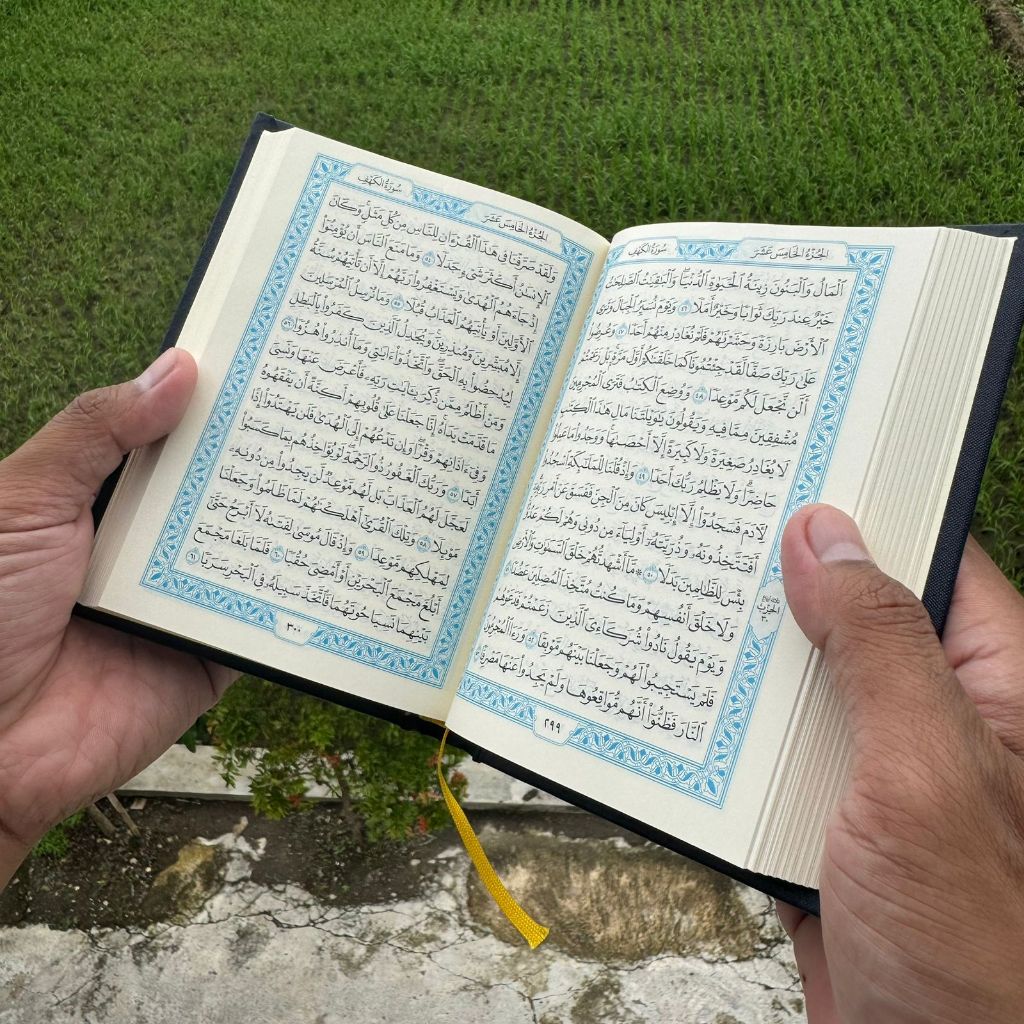 سُورَةُ الكَهْفِ
الجُزْءُ الخَامِسَ عَشَرَ
ٱلْمَالُ وَٱلْبَنُونَ زِينَةُ ٱلْحَيَوٰةِ ٱلدُّنْيَاۖ وَٱلْبَٰقِيَٰتُ ٱلصَّٰلِحَٰتُ
خَيْرٌ عِندَ رَبِّكَ ثَوَابًا وَخَيْرٌ أَمَلًا ٤٦ وَيَوْمَ نُسَيِّرُ ٱلْجِبَالَ وَتَرَى
ٱلْأَرْضَ بَارِزَةً وَحَشَرْنَٰهُمْ فَلَمْ نُغَادِرْ مِنْهُمْ أَحَدًا ٤٧ وَعُرِضُوا۟
عَلَىٰ رَبِّكَ صَفًّا لَّقَدْ جِئْتُمُونَا كَمَا خَلَقْنَٰكُمْ أَوَّلَ مَرَّةٍۭۚ بَلْ زَعَمْتُمْ
أَلَّن نَّجْعَلَ لَكُم مَّوْعِدًا ٤٨ وَوُضِعَ ٱلْكِتَٰبُ فَتَرَى ٱلْمُجْرِمِينَ
مُشْفِقِينَ مِمَّا فِيهِ وَيَقُولُونَ يَٰوَيْلَتَنَا مَالِ هَٰذَا ٱلْكِتَٰبِ
لَا يُغَادِرُ صَغِيرَةً وَلَا كَبِيرَةً إِلَّآ أَحْصَىٰهَاۚ وَوَجَدُوا۟ مَا عَمِلُوا۟
حَاضِرًاۗ وَلَا يَظْلِمُ رَبُّكَ أَحَدًا ٤٩ وَإِذْ قُلْنَا لِلْمَلَٰٓئِكَةِ ٱسْجُدُوا۟
لِءَادَمَ فَسَجَدُوٓا۟ إِلَّآ إِبْلِيسَ كَانَ مِنَ ٱلْجِنِّ فَفَسَقَ عَنْ أَمْرِ رَبِّهِۦٓۗ
أَفَتَتَّخِذُونَهُۥ وَذُرِّيَّتَهُۥٓ أَوْلِيَآءَ مِن دُونِى وَهُمْ لَكُمْ عَدُوٌّۢۚ
بِئْسَ لِلظَّٰلِمِينَ بَدَلًا ٥٠ ۞ مَّآ أَشْهَدتُّهُمْ خَلْقَ ٱلسَّمَٰوَٰتِ وَٱلْأَرْضِ
وَلَا خَلْقَ أَنفُسِهِمْ وَمَا كُنتُ مُتَّخِذَ ٱلْمُضِلِّينَ عَضُدًا ٥١
وَيَوْمَ يَقُولُ نَادُوا۟ شُرَكَآءِىَ ٱلَّذِينَ زَعَمْتُمْ فَدَعَوْهُمْ
فَلَمْ يَسْتَجِيبُوا۟ لَهُمْ وَجَعَلْنَا بَيْنَهُم مَّوْبِقًا ٥٢ وَرَءَا ٱلْمُجْرِمُونَ
ٱلنَّارَ فَظَنُّوٓا۟ أَنَّهُم مُّوَاقِعُوهَا وَلَمْ يَجِدُوا۟ عَنْهَا مَصْرِفًا ٥٣
الحِزْبُ
٣٠
٢٩٩
سُورَةُ الكَهْفِ
الجُزْءُ الخَامِسَ عَشَرَ
وَلَقَدْ صَرَّفْنَا فِى هَٰذَا ٱلْقُرْءَانِ لِلنَّاسِ مِن كُلِّ مَثَلٍۚ وَكَانَ
ٱلْإِنسَٰنُ أَكْثَرَ شَىْءٍ جَدَلًا ٥٤ وَمَا مَنَعَ ٱلنَّاسَ أَن يُؤْمِنُوٓا۟
إِذْ جَآءَهُمُ ٱلْهُدَىٰ وَيَسْتَغْفِرُوا۟ رَبَّهُمْ إِلَّآ أَن تَأْتِيَهُمْ سُنَّةُ
ٱلْأَوَّلِينَ أَوْ يَأْتِيَهُمُ ٱلْعَذَابُ قُبُلًا ٥٥ وَمَا نُرْسِلُ ٱلْمُرْسَلِينَ
إِلَّا مُبَشِّرِينَ وَمُنذِرِينَۚ وَيُجَٰدِلُ ٱلَّذِينَ كَفَرُوا۟ بِٱلْبَٰطِلِ
لِيُدْحِضُوا۟ بِهِ ٱلْحَقَّۖ وَٱتَّخَذُوٓا۟ ءَايَٰتِى وَمَآ أُنذِرُوا۟ هُزُوًا ٥٦
وَمَنْ أَظْلَمُ مِمَّن ذُكِّرَ بِـَٔايَٰتِ رَبِّهِۦ فَأَعْرَضَ عَنْهَا وَنَسِىَ
مَا قَدَّمَتْ يَدَاهُۚ إِنَّا جَعَلْنَا عَلَىٰ قُلُوبِهِمْ أَكِنَّةً أَن يَفْقَهُوهُ
وَفِىٓ ءَاذَانِهِمْ وَقْرًاۖ وَإِن تَدْعُهُمْ إِلَى ٱلْهُدَىٰ فَلَن يَهْتَدُوٓا۟ إِذًا
أَبَدًا ٥٧ وَرَبُّكَ ٱلْغَفُورُ ذُو ٱلرَّحْمَةِۖ لَوْ يُؤَاخِذُهُم بِمَا كَسَبُوا۟
لَعَجَّلَ لَهُمُ ٱلْعَذَابَۚ بَل لَّهُم مَّوْعِدٌ لَّن يَجِدُوا۟ مِن دُونِهِۦ
مَوْئِلًا ٥٨ وَتِلْكَ ٱلْقُرَىٰٓ أَهْلَكْنَٰهُمْ لَمَّا ظَلَمُوا۟ وَجَعَلْنَا
لِمَهْلِكِهِم مَّوْعِدًا ٥٩ وَإِذْ قَالَ مُوسَىٰ لِفَتَىٰهُ لَآ أَبْرَحُ حَتَّىٰٓ
أَبْلُغَ مَجْمَعَ ٱلْبَحْرَيْنِ أَوْ أَمْضِىَ حُقُبًا ٦٠ فَلَمَّا بَلَغَا مَجْمَعَ
بَيْنِهِمَا نَسِيَا حُوتَهُمَا فَٱتَّخَذَ سَبِيلَهُۥ فِى ٱلْبَحْرِ سَرَبًا ٦١
٣٠٠